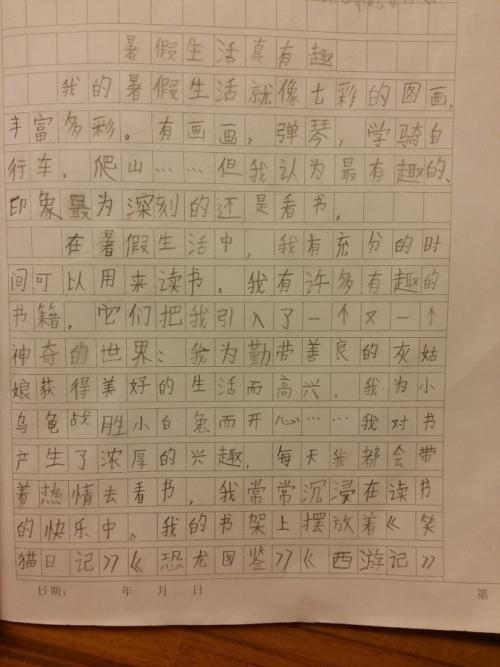 暑假生活真有趣
我的暑假生活就像七彩的图画，
丰富多彩。有画画，弹琴，学骑自
行车，爬山……但我认为最有趣的、
印象最为深刻的还是看书。
在暑假生活中，我有充分的时
间可以用来读书。我有许多有趣的
书籍，它们把我引入了一个又一个
神奇的世界：我为勤劳善良的灰姑
娘获得美好的生活而高兴，我为小
乌龟战胜小白兔而开心……我对书
产生了浓厚的兴趣，每天我都会带
着热情去看书，我常常沉浸在读书
的快乐中。我的书架上摆放着《笑
猫日记》《恐龙图鉴》《西游记》
日期： 年 月 日
第